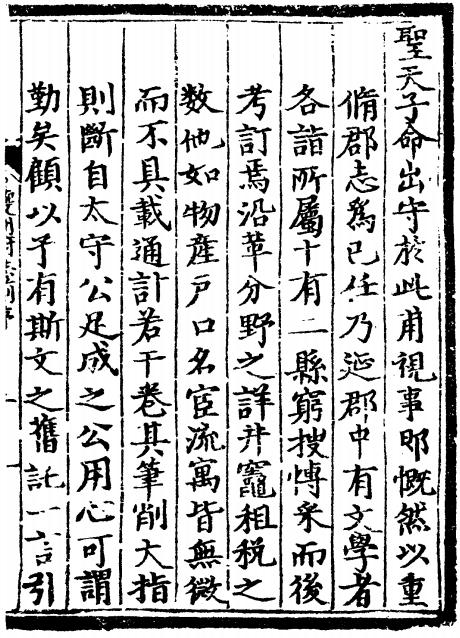 聖天子命出守於此甫視事即慨然以重
脩郡志為己任乃延郡中有文學者
各詣所屬十有二縣窮搜愽采而後
考訂焉沿革分野之詳井竈租稅之
数他如物産戸口名宦流寓皆無微
而不具載通計若干卷其筆削大指
則斷自太守公足成之公用心可謂
勤矣顧以予有斯文之舊託一言引